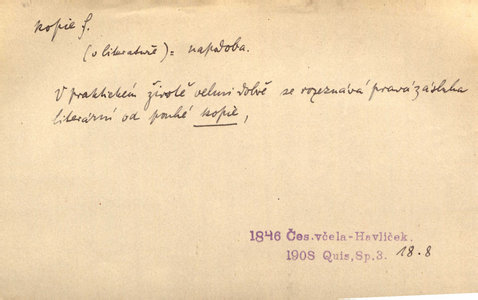 kopie f.
(v literatuře) = napodoba.
V praktickém životě velmi dobře se rozeznává pravá zásluha
literární od pouhé kopie,
1846 Čes.včela-Havlíček.
1908 Quis, Sp.3. 18.8